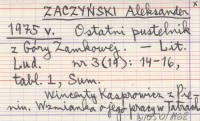 ZACZYŃSKI Aleksander
1975 v. Ostatni pustelnik
z Góry Zamkowej. — Lit.
Lud. nr 3(19): 14-16,
tabl. 1, Sum.
Wincenty Kasprowicz z Pie-
nin. Wzmianka o jego pracy w Tatrach